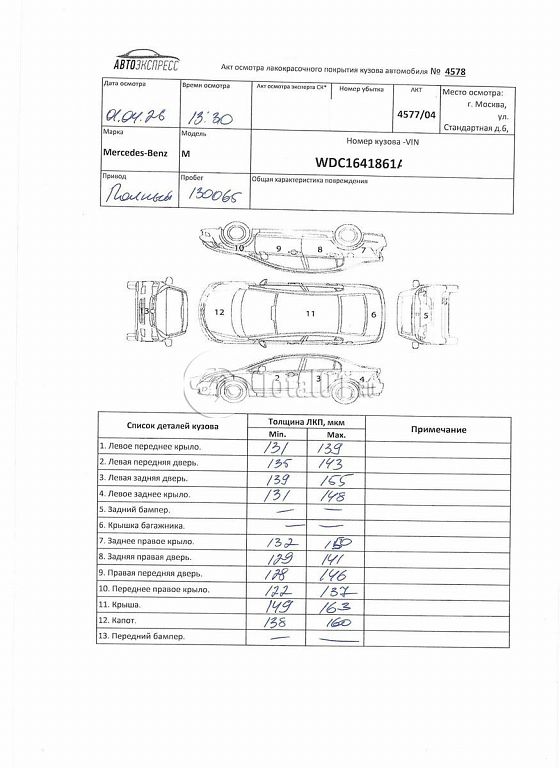 АВТОЭКСПРЕСС
Акт осмотра лакокрасочного покрытия кузова автомобиля № 4578
Дата осмотра Время осмотра Акт осмотра эксперта СК* Номер убытка АКТ Место осмотра:
01.04.26 13:30 4577/04 г. Москва,
ул.
Стандартная д.6,
Марка Модель Номер кузова -VIN
Mercedes-Benz M WDC1641861A
Привод Пробег Общая характеристика повреждения
Полный 130065
10 9 8 7
13 12 11 6 5
1 2 3 4
TotalD
Список деталей кузова Толщина ЛКП, мкм Примечание
Min. Max.
1. Левое переднее крыло. 131 139
2. Левая передняя дверь. 135 143
3. Левая задняя дверь. 139 155
4. Левое заднее крыло. 131 148
5. Задний бампер. — —
6. Крышка багажника. — —
7. Заднее правое крыло. 132 150
8. Задняя правая дверь. 129 141
9. Правая передняя дверь. 128 146
10. Переднее правое крыло. 122 137
11. Крыша. 149 163
12. Капот. 138 160
13. Передний бампер. — —